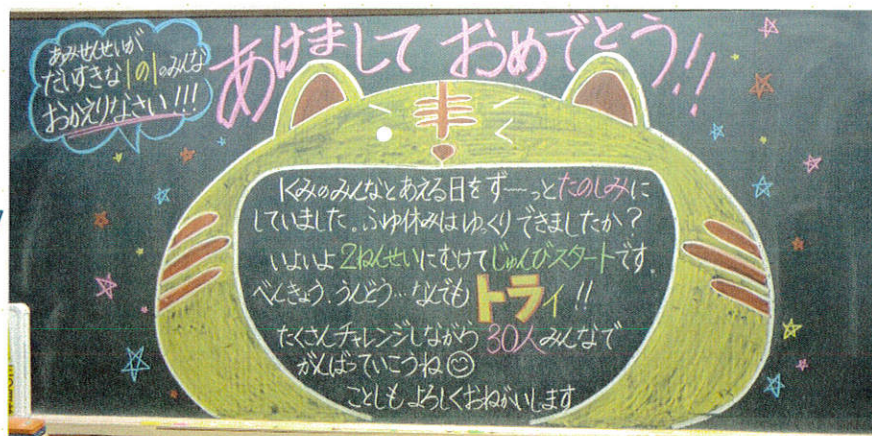 あけまして おめでとう!!
あみせんせいが
だいすきな1の1のみんな
おかえりなさい!!!
1くみのみんなとあえる日をず〜〜っとたのしみに
していました。ふゆ休みはゆっくりできましたか?
いよいよ2ねんせいにむけてじゅんびスタートです。
べんきょう、うんどう…なんでもトライ!!
たくさんチャレンジしながら30人みんなで
がんばっていこうね☺
ことしもよろしくおねがいします